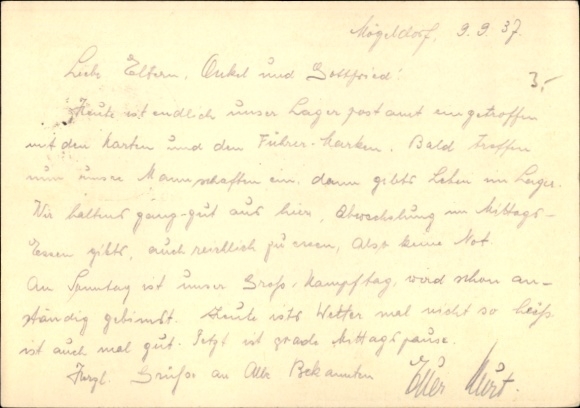 Mögeldorf, 9.9.37.
Liebe Eltern, Onkel und Gottfried!
3,-
Heute ist endlich unser Lagerpostamt eingetroffen
mit den Karten und den Führer-Marken. Bald treffen
nun unsere Mannschaften ein, dann gibts Leben im Lager.
Wir haltens ganz gut aus hier, Abwechslung im Mittags-
Essen gibts, auch reichlich zu essen, also keine Not.
Am Sonntag ist unser Groß-Kampftag, wird schon an-
ständig gebimst. Heute ists Wetter mal nicht so heiß
ist auch mal gut. Jetzt ist grade Mittagspause.
Herzl. Grüße an Alle Bekannten Euer Kurt.